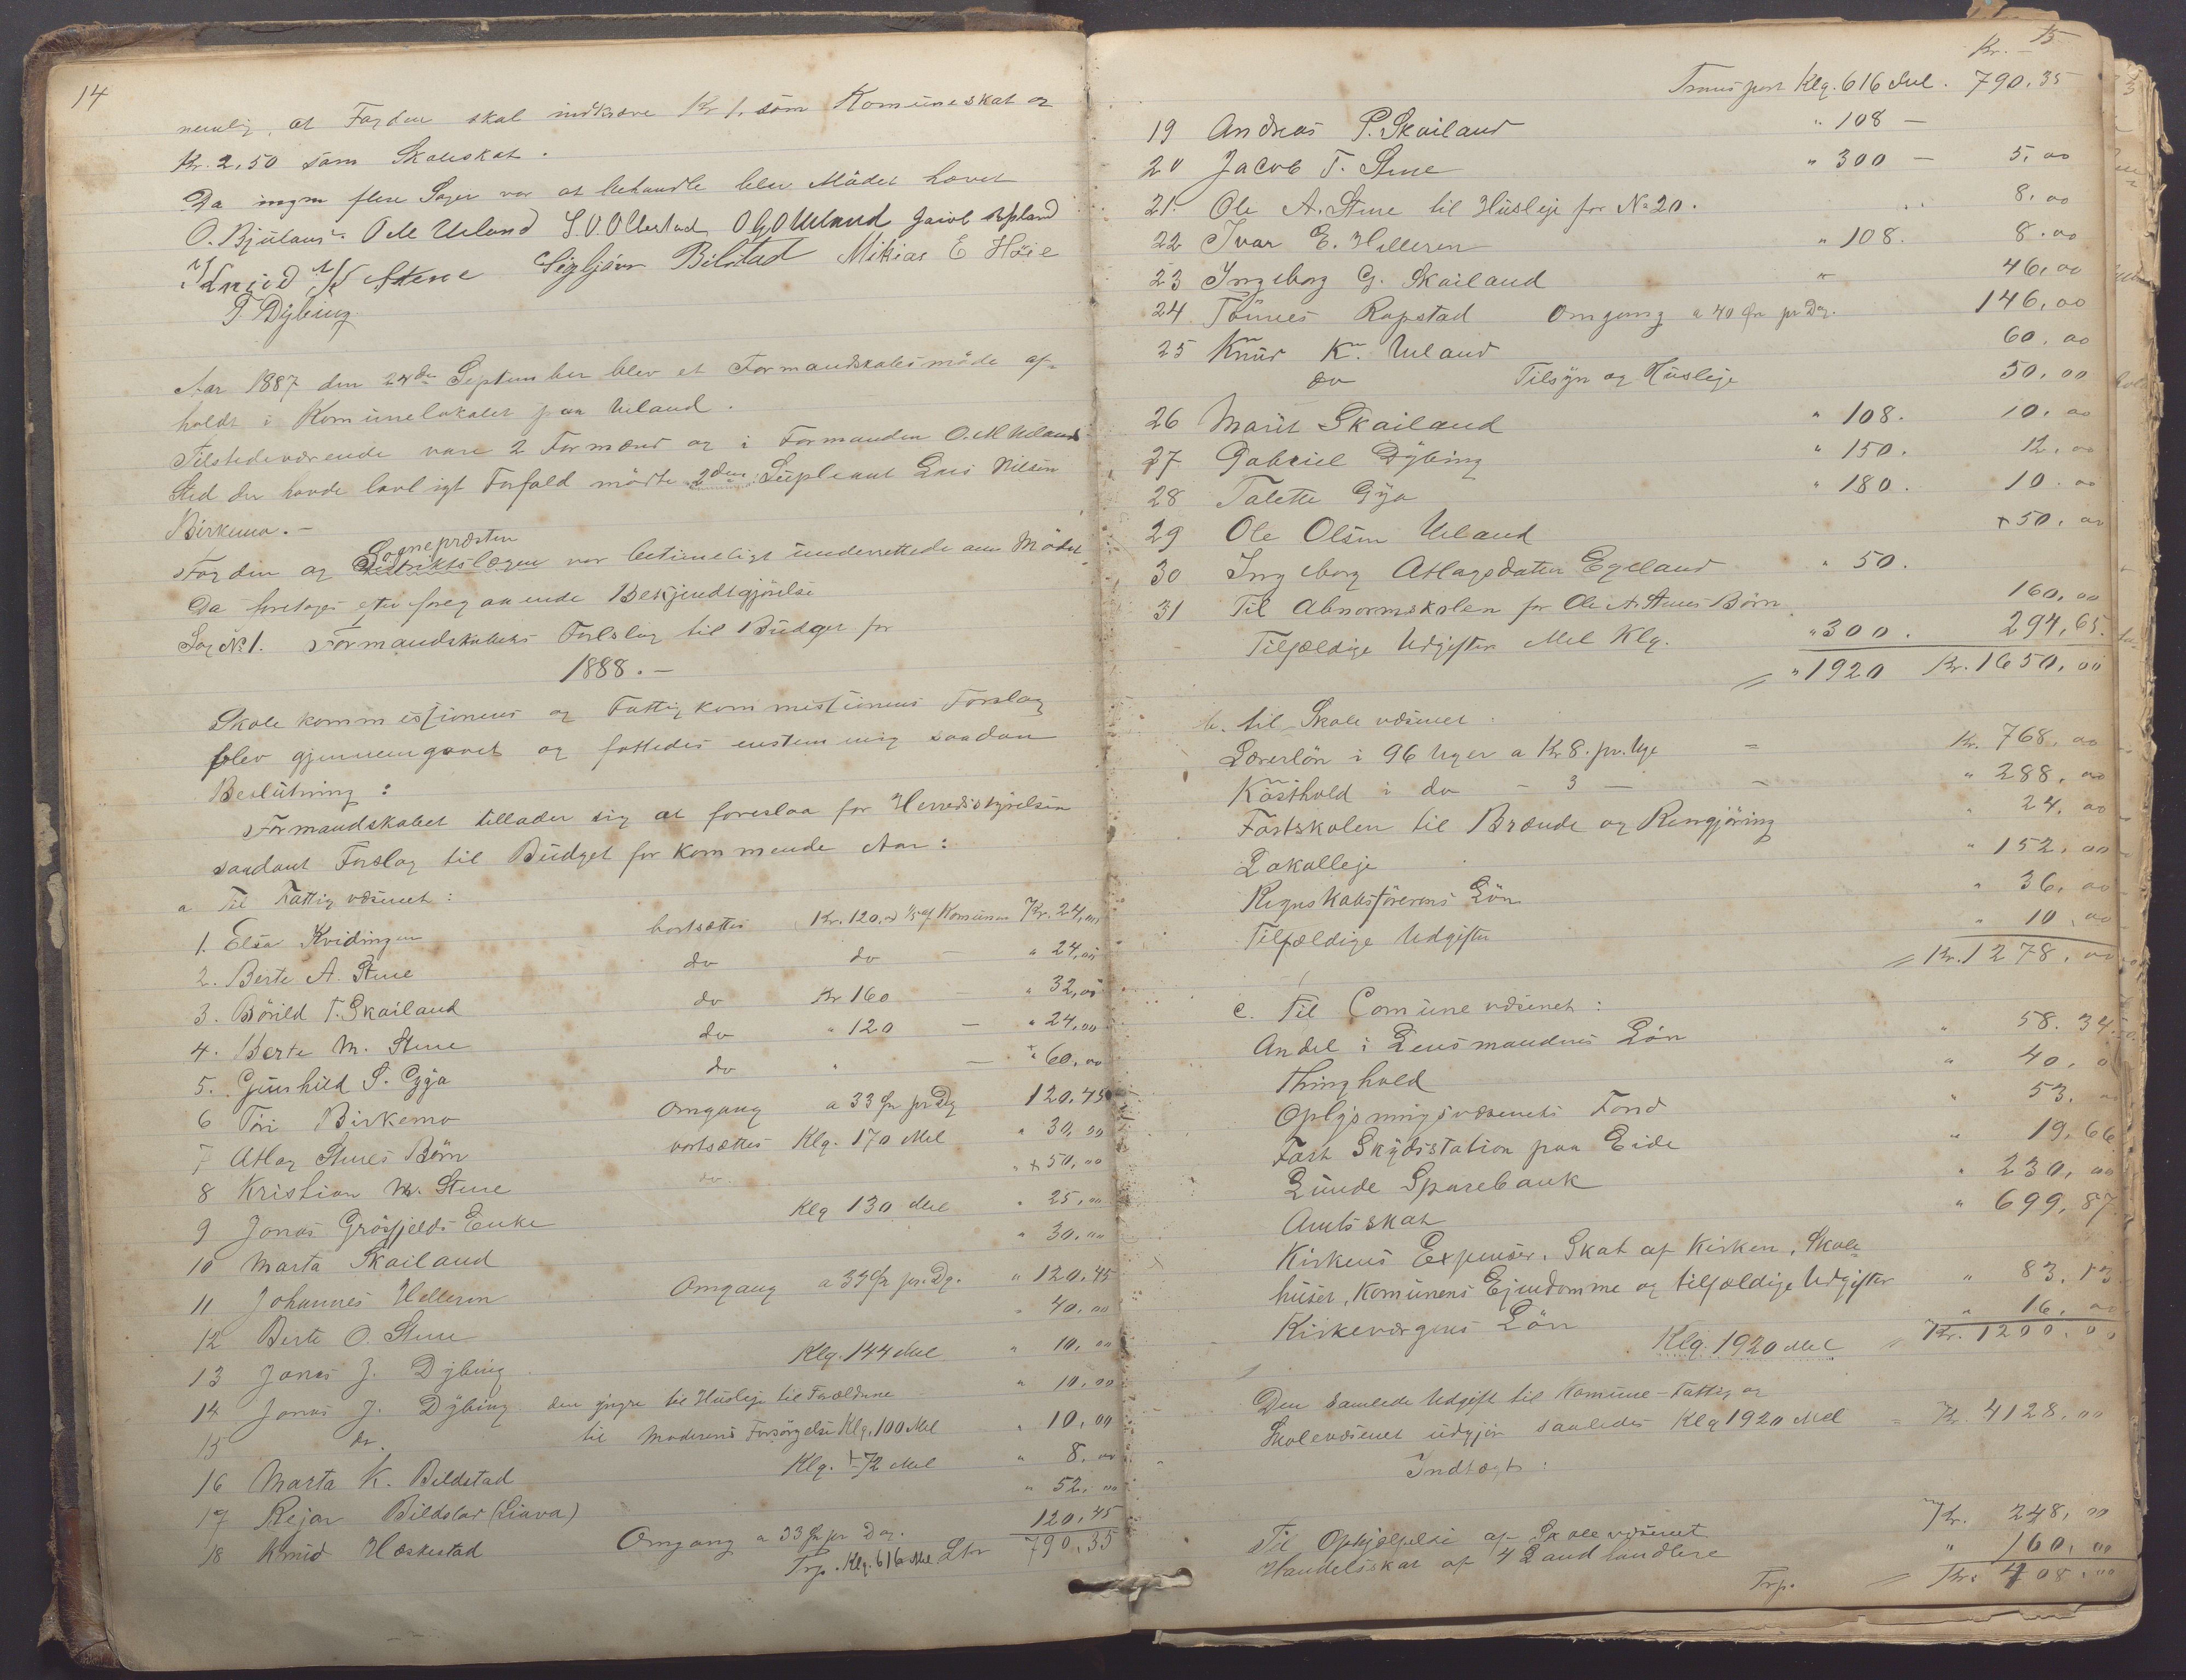 14
nemlig, at Fogden skal indkræve Kr 1, som Komuneskat og
Kr. 2,50 som Skoleskat.
Da ingen flere Sager var at behandle blev Mødet hævet
O. Bjuland. O M Ueland S. O. Ollestad O G Ueland Jacob Øpland
Knud Stene Sigbjørn Bilstad Mikias E Høie
T. Dybing
Aar 1887 den 24de September blev et Formandskabsmøde af-
holdt i Komunelokalet paa Ueland.
Tilstedeværende vare 2 Formænd og i Formanden O. M Uelands
Sted der havde lovligt Forfald mødte 2den Supleant Lars Nilsen
Birkemo.-
Fogden og Sognepræsten var betimeligt underrettede om Mødet
Da foretoges efter foregaaende Bekjendtgjørelse
Sag No 1. Formandskabets Forslag til Budget for
1888.-
Skolekommissionens og Fattigkommissionens Forslag
blev gjennemgaaet og fattedes enstemmig saadan
Beslutning:
Formandskabet tillader sig at foreslaa for Herredsstyrelsen
saadant Forslag til Budget for kommende Aar:
a Til Fattigvæsenet:
1. Elsa Kvidingen bortsættes Kr. 120.- 1/5 af Komunen Kr. 24,00
2. Berte A. Stene do do - " 24,00
3. Børild T. Skailand do Kr 160 - " 32,00
4. Berte M. Stene do " 120 - " 24,00
5. Gunhild S. Gyja do " - + 60,00
6 Tori Birkemo Omgang a 33 Øre pr Dg 120,45
7 Atlag Stenes Børn bortsættes Klg. 170 Mel " 30,00
8 Kristian M. Stene do " + 50,00
9 Jonas Grøsfjelds Enke Klg 130 Mel " 25,00
10 Marta Skailand " 30,00
11 Johannes Helleren Omgang a 33 Øre pr. Dg. " 120,45
12 Berte O. Stene " 40,00
13 Jonas J. Dybing Klg. 144 Mel " 10,00
14 Jonas J. Dybing den yngre til Husleje til Forældrene " 10,00
15 do. til Moderens Forsørgelse Klg. 100 Mel " 10,00
16 Marta K. Bildstad Klg. 72 Mel " 8,00
17 Rejar Bildstad (Liava) " 52,00
18 Knud Hæskestad Omgang a 33 Øre pr Dag. 120,45
Trp. Klg. 616 Mel 790,35
15
Kr. -
Transport Klg. 616 Mel. 790,35
19 Andreas P. Skailand " 108 -
20 Jacob T. Stene " 300 - 5,00
21. Ole A. Stene til Husleje for No 20. 8,00
22 Ivar E. Helleren " 108. 8,00
23 Ingeborg G. Skailand " 46,00
24 Tønnes Rapstad Omgang a 40 Øre pr Dag. 146,00
25 Knud K. Ueland 60,00
do Tilsyn og Husleje 50,00
26 Marit Skailand " 108. 10,00
27 Gabriel Dybing " 150. 12,00
28 Talette Gya " 180. 10,00
29 Ole Olsen Ueland + 50,00
30 Ingeborg Atlagsdatter Egeland " 50.
31 Til Abnormskolen for Ole A. Stenes Børn 160,00
Tilfældige Udgifter Mel Klg. " 300. 294,65.
" 1920 Kr. 1650,00
b. til Skolevæsenet:
Lærerløn i 96 Uger a Kr 8. pr. Uge = Kr. 768,00
Kosthold i do - 3 - - " 288,00
Fastskolen til Brænde og Rengjøring " 24,00
Lokalleje " 152,00
Regnskabsførerens Løn " 36,00
Tilfældige Udgifter " 10,00
Kr. 1278,00
c. Til Comunevæsenet:
Andel i Lensmandens Løn " 58.34
Thinghold " 40,0
Oplysningsvæsenets Fond " 53,
Fast Skydsstation paa Eide " 19,66
Lunde Sparebank " 230,00
Amtsskat " 699,87
Kirkens Expenser. Skat af Kirken, Skole-
huset, Komunens Ejendomme og tilfældige Udgifter " 83,13
Kirkeværgens Løn " 16,00
Klg. 1920 Mel Kr. 1200,00
Den samlede Udgift til Komune-Fattig og
Skolevæsenet udgjør saaledes Klg 1920 Mel = Kr. 4128,00
Indtægt:
Til Ophjælpelse af Skolevæsenet Kr. 248,00
Handelsskat af 4 Landhandlere " 160,00
Trp. Kr. 408,00